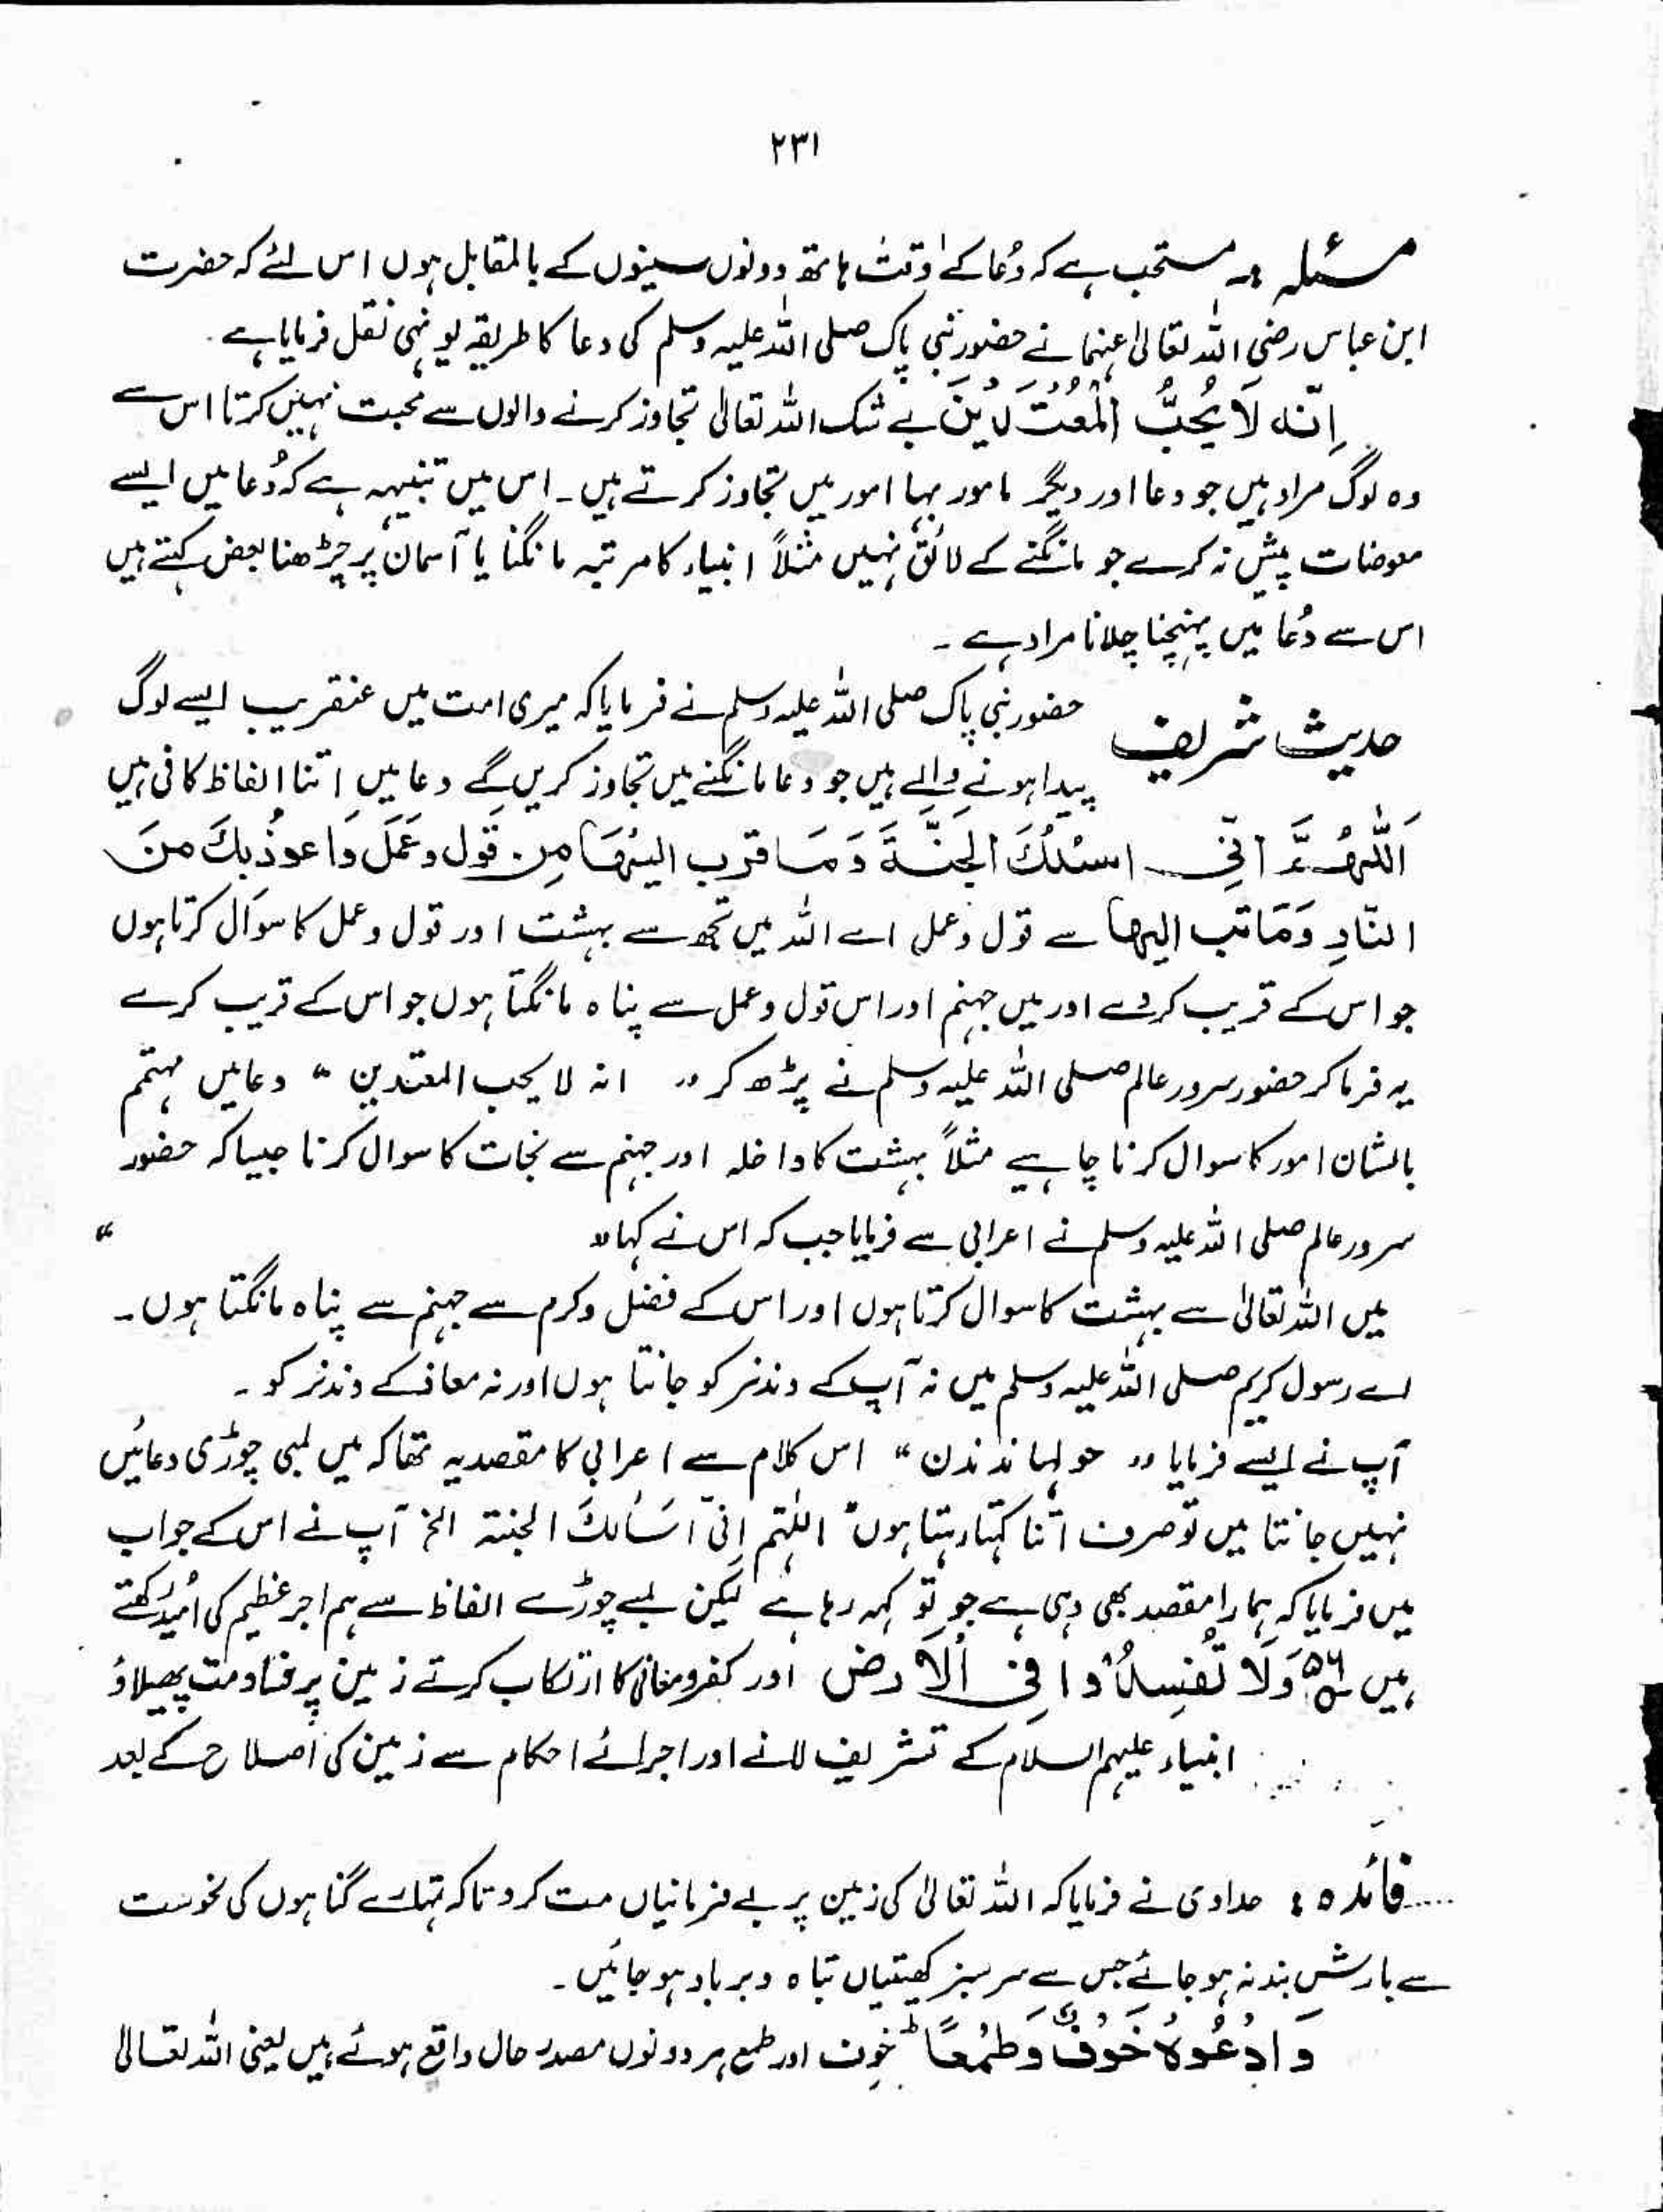 ۲۳۱
مسئلہ :۔ مستحب ہے کہ دُعا کے وقت ہاتھ دونوں سینوں کے بالمقابل ہوں اس لئے کہ حضرت
ابن عباس رضی اللہ تعالیٰ عنہما نے حضور نبی پاک صلی اللہ علیہ وسلم کی دعا کا طریقہ یونہی نقل فرمایا ہے ۔
اِنَّہ لَا یُحِبُّ الْمُعْتَدِیْنَ بے شک اللہ تعالیٰ تجاوز کرنے والوں سے محبت نہیں کرتا اس سے
وہ لوگ مراد ہیں جو دعا اور دیگر مامور بہا امور میں تجاوز کرتے ہیں ۔ اس میں تنبیہہ ہے کہ دُعا میں ایسے
معوضات پیش نہ کرے جو مانگنے کے لائق نہیں مثلاً انبیاء کا مرتبہ مانگنا یا آسمان پر چڑھنا بعض کہتے ہیں
اس سے دُعا میں پہنچنا چلانا مراد ہے ۔
حدیث شریف حضور نبی پاک صلی اللہ علیہ وسلم نے فرمایا کہ میری امت میں عنقریب ایسے لوگ
پیدا ہونے والے ہیں جو دعا مانگنے میں تجاوز کریں گے دعا میں اتنا الفاظ کافی ہیں
اَللّٰہُمَّ اِنِّی اسئلُکَ الجنَّۃَ وَمَا قرب الیْہَا مِن قَول وعَمَل وَاعوذُبِکَ منَ
النّارِ وَمَا قرب الیھا سے قول وعمل اے اللہ میں تجھ سے بہشت اور قول وعمل کا سوال کرتا ہوں
جو اس کے قریب کردے اور میں جہنم اور اس قول وعمل سے پناہ مانگتا ہوں جو اس کے قریب کرے
یہ فرما کر حضور سرور عالم صلی اللہ علیہ وسلم نے پڑھ کر " انہ لا یحب المعتدین " دعا میں مہتم
بالشان امور کا سوال کرنا چاہیے مثلاً بہشت کا داخلہ اور جہنم سے نجات کا سوال کرنا جیسا کہ حضور
سرور عالم صلی اللہ علیہ وسلم نے اعرابی سے فرمایا جب کہ اس نے کہا " "
میں اللہ تعالیٰ سے بہشت کا سوال کرتا ہوں اور اس کے فضل وکرم سے جہنم سے پناہ مانگتا ہوں ۔
اے رسول کریم صلی اللہ علیہ وسلم میں نہ آپ کے دندنہ کو جانتا ہوں اور نہ معاذ کے دندنہ کو ۔
آپ نے ایسے فرمایا " حولہا ندندن " اس کلام سے اعرابی کا مقصد یہ تھا کہ میں لمبی چوڑی دعائیں
نہیں جانتا میں تو صرف اتنا کہتا رہتا ہوں " اللہم اِنّی اَسَالکَ الجنتہ الخ آپ نے اس کے جواب
میں فرمایا کہ ہمارا مقصد بھی وہی ہے جو تو کہہ رہا ہے لیکن لمبے چوڑے الفاظ سے ہم اجر عظیم کی اُمید رکھتے
ہیں ۵۶ وَلَا تُفْسِدُوْا فِی الْاَرضِ اور کفر ومعاصی کا ارتکاب کرتے زمین پر فساد مت پھیلاؤ
انبیاء علیہم السلام کے تشریف لانے اور اجرائے احکام سے زمین کی اصلاح کے بعد
فائدہ : حدادی نے فرمایا کہ اللہ تعالیٰ کی زمین پر بے فرمانیاں مت کرو تاکہ تمہارے گناہوں کی نحوست
سے بارش بند نہ ہو جائے جس سے سرسبز کھیتیاں تباہ وبرباد ہو جائیں ۔
وَادْعُوْہُ خَوْفًا وَّطَمَعًا ط خوف اور طمع ہر دونوں مصدر حال واقع ہوئے ہیں یعنی اللہ تعالیٰ